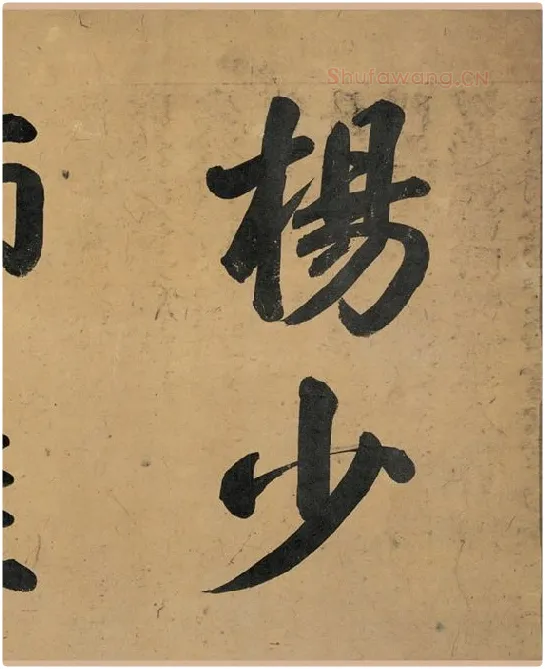 Shufawang.CN
楊少